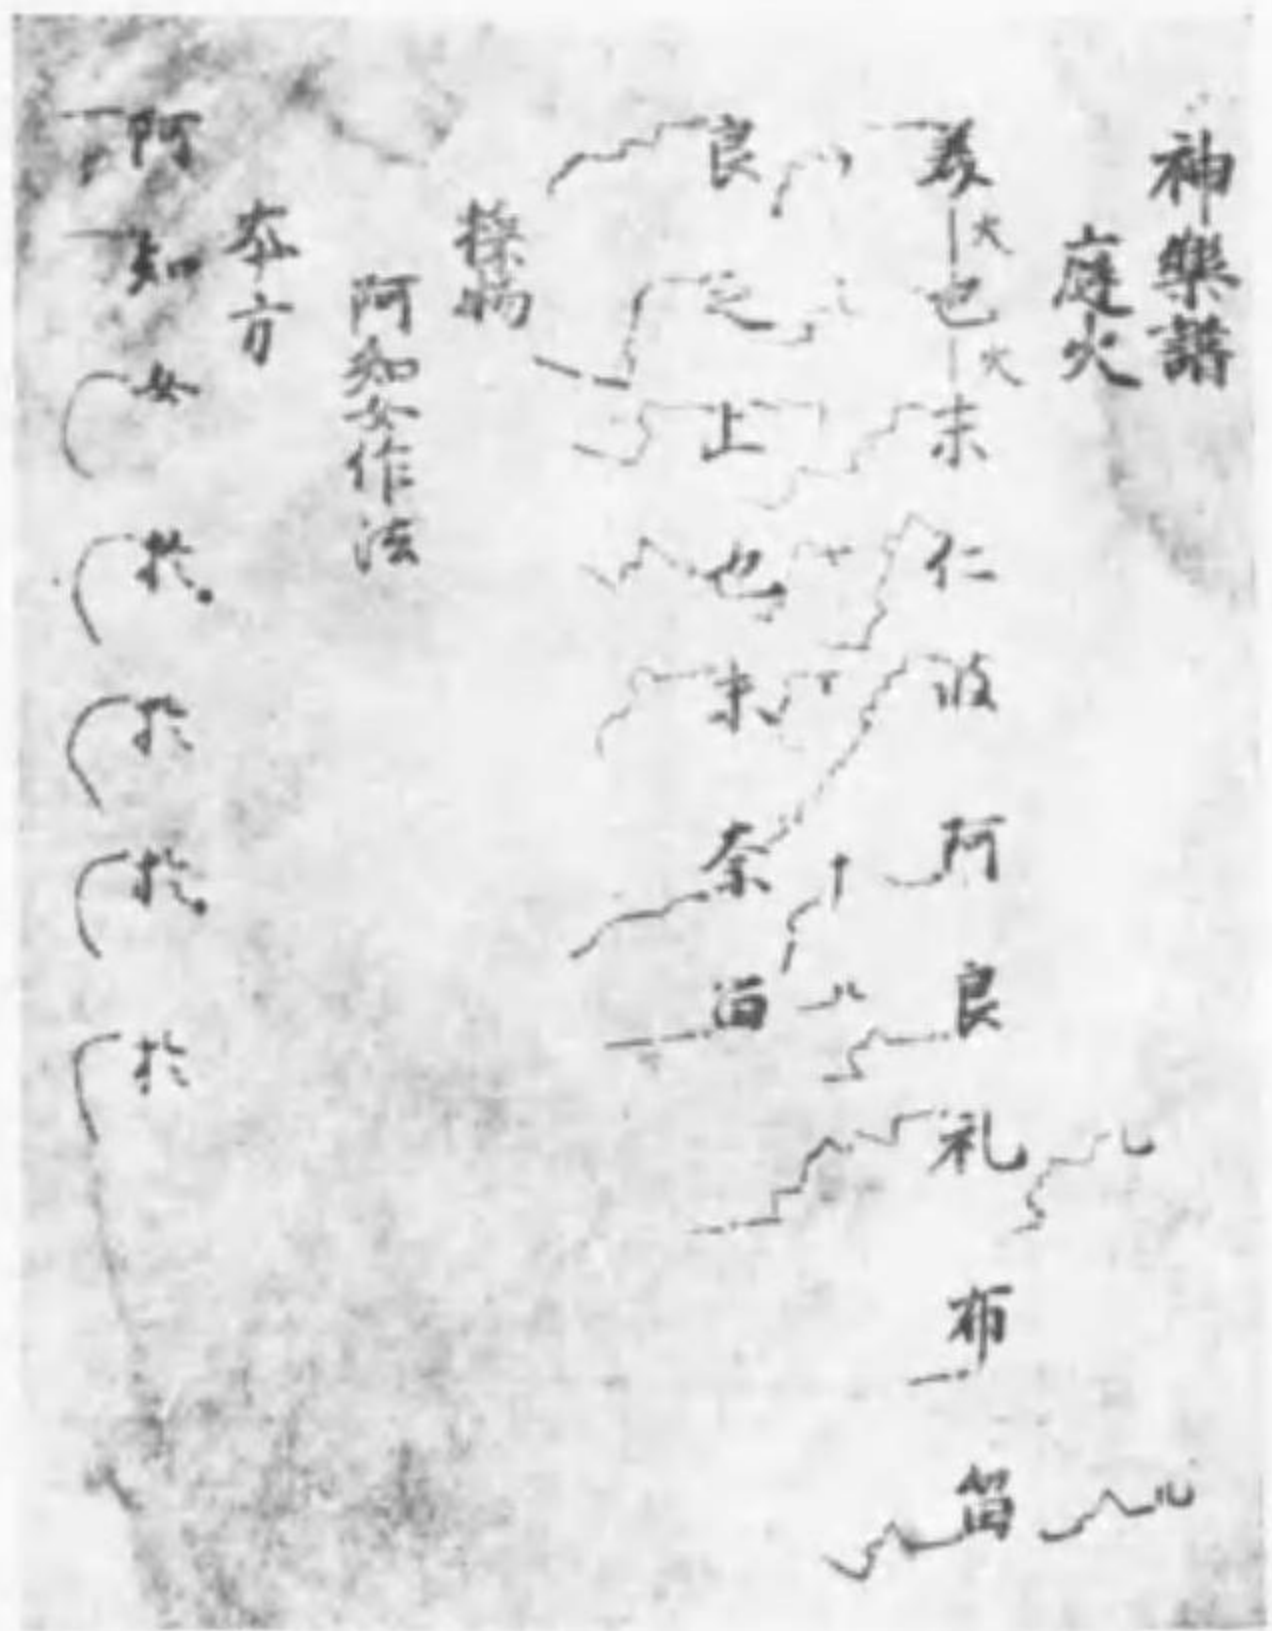 神樂譜
庭火
美火也火末仁波阿良礼布留
良之上也末奈留
採物
阿知女作法
本方
阿知女於於於於